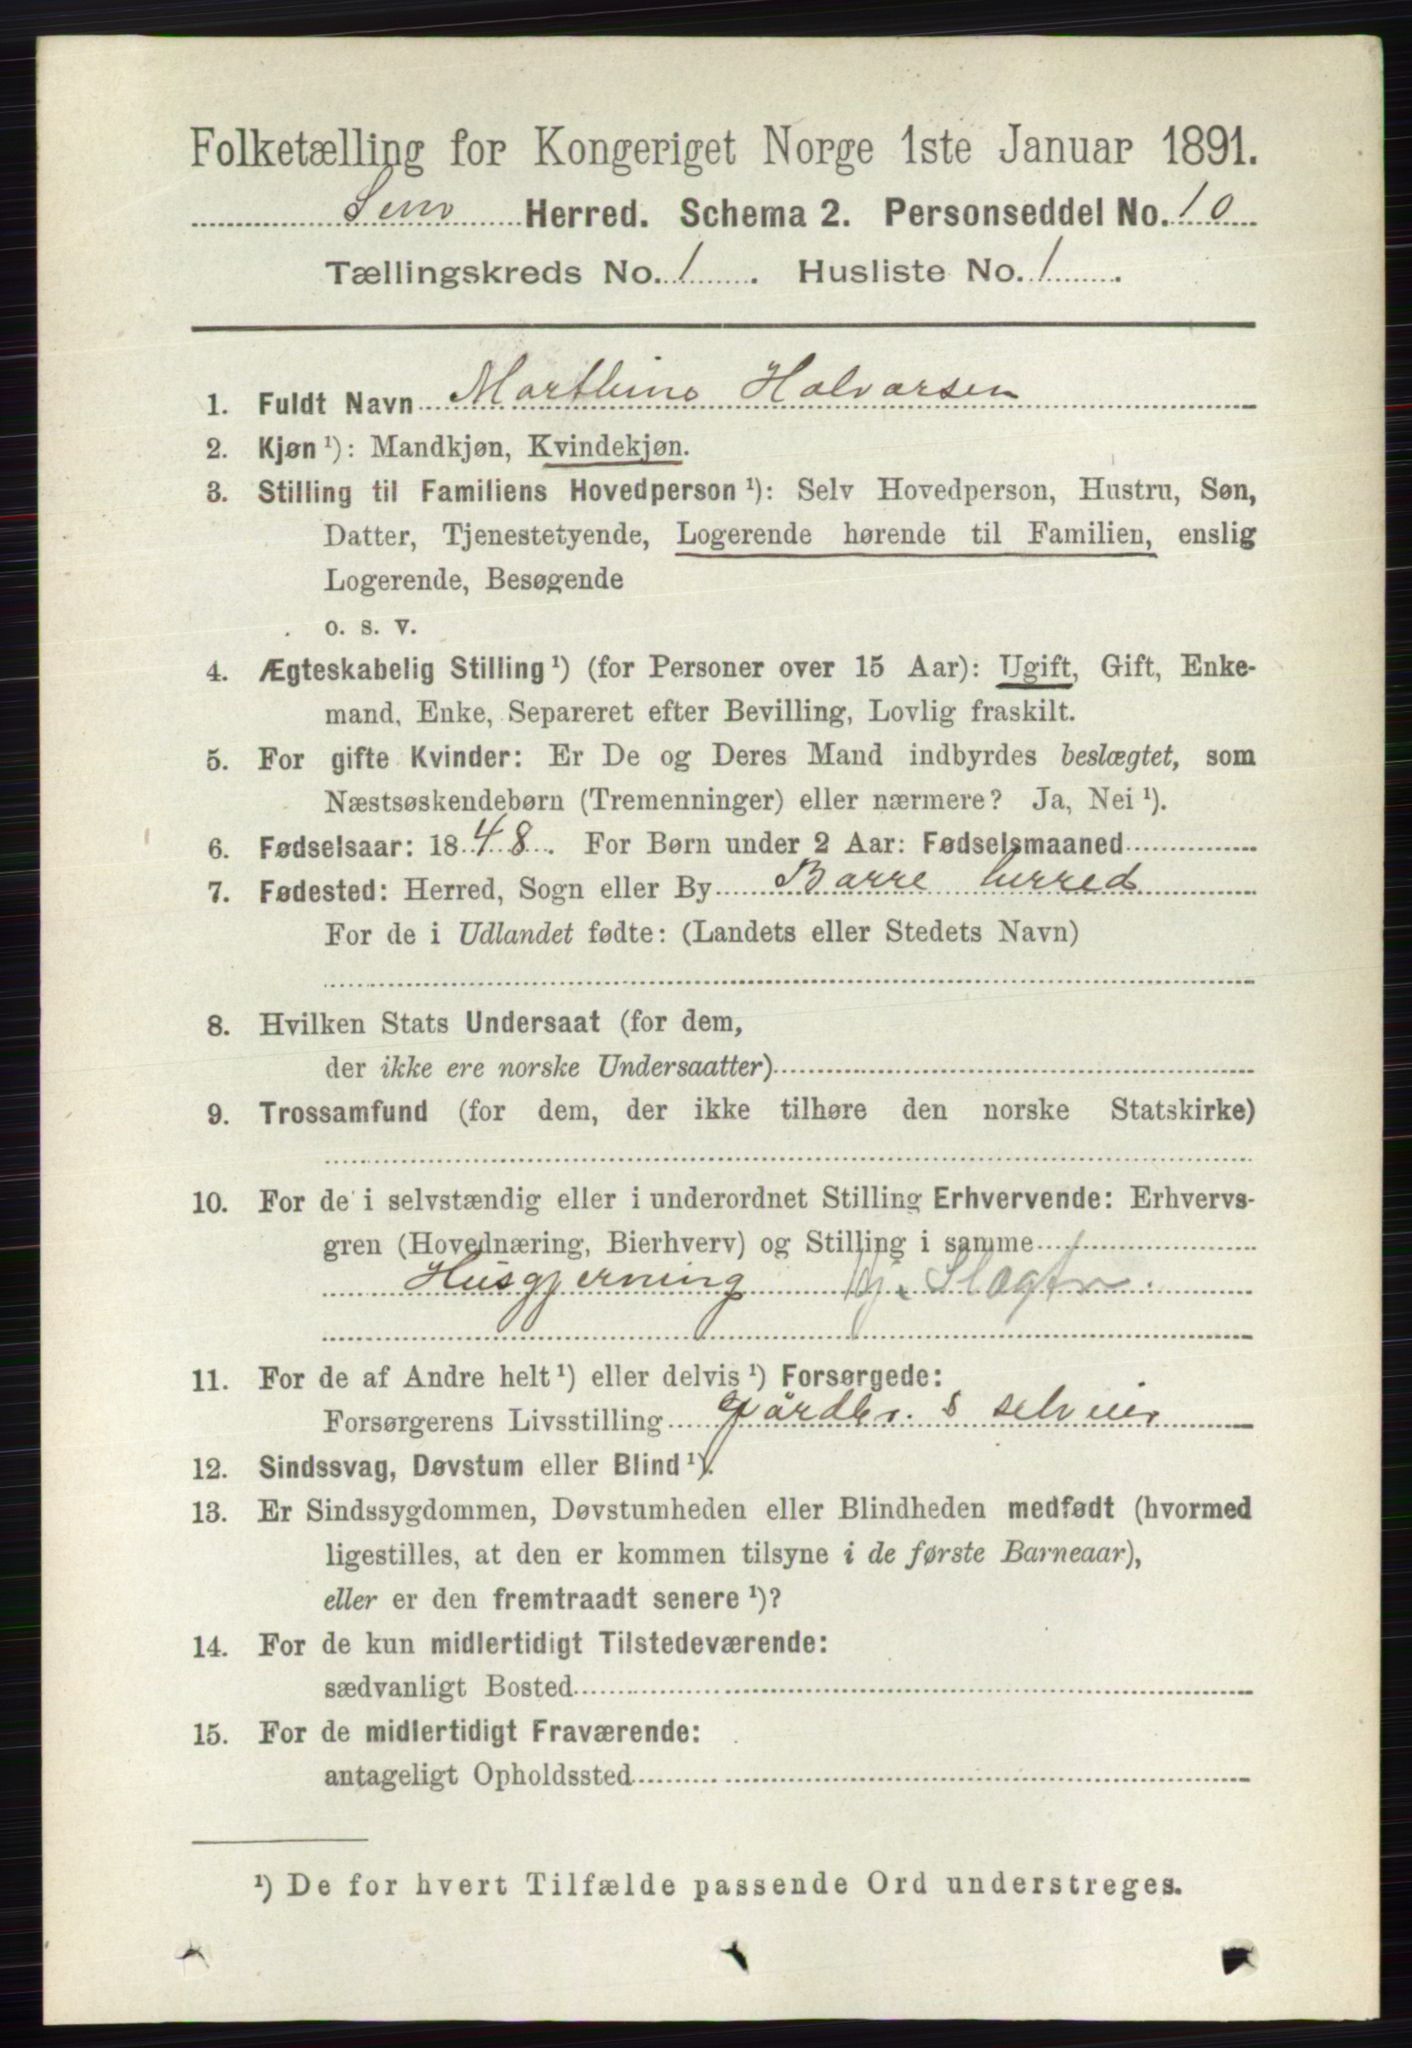 Folketælling for Kongeriget Norge 1ste Januar 1891.
Sem Herred. Schema 2. Personseddel No. 10
Tællingskreds No. 1. Husliste No. 1.
1. Fuldt Navn Marthine Halvarsen
2. Kjøn ¹): Mandkjøn, Kvindekjøn.
3. Stilling til Familiens Hovedperson ¹): Selv Hovedperson, Hustru, Søn,
Datter, Tjenestetyende, Logerende hørende til Familien, enslig
Logerende, Besøgende
o. s. v.
4. Ægteskabelig Stilling ¹) (for Personer over 15 Aar): Ugift, Gift, Enke-
mand, Enke, Separeret efter Bevilling, Lovlig fraskilt.
5. For gifte Kvinder: Er De og Deres Mand indbyrdes beslægtet, som
Næstsøskendebørn (Tremenninger) eller nærmere? Ja, Nei ¹).
6. Fødselsaar: 1848. For Børn under 2 Aar: Fødselsmaaned
7. Fødested: Herred, Sogn eller By Barre herred
For de i Udlandet fødte: (Landets eller Stedets Navn)
8. Hvilken Stats Undersaat (for dem,
der ikke ere norske Undersaatter)
9. Trossamfund (for dem, der ikke tilhøre den norske Statskirke)
10. For de i selvstændig eller i underordnet Stilling Erhvervende: Erhvervs-
gren (Hovednæring, Bierhverv) og Stilling i samme
Husgjerning hj. Slægtn.
11. For de af Andre helt ¹) eller delvis ¹) Forsørgede:
Forsørgerens Livsstilling gårdbr. s selveier
12. Sindssvag, Døvstum eller Blind ¹).
13. Er Sindssygdommen, Døvstumheden eller Blindheden medfødt (hvormed
ligestilles, at den er kommen tilsyne i de første Barneaar),
eller er den fremtraadt senere ¹)?
14. For de kun midlertidigt Tilstedeværende:
sædvanligt Bosted
15. For de midlertidigt Fraværende:
antageligt Opholdssted
¹) De for hvert Tilfælde passende Ord understreges.